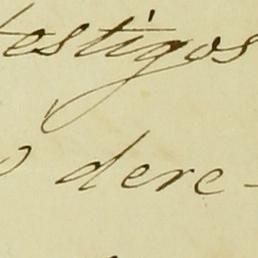 testigos
o dere-